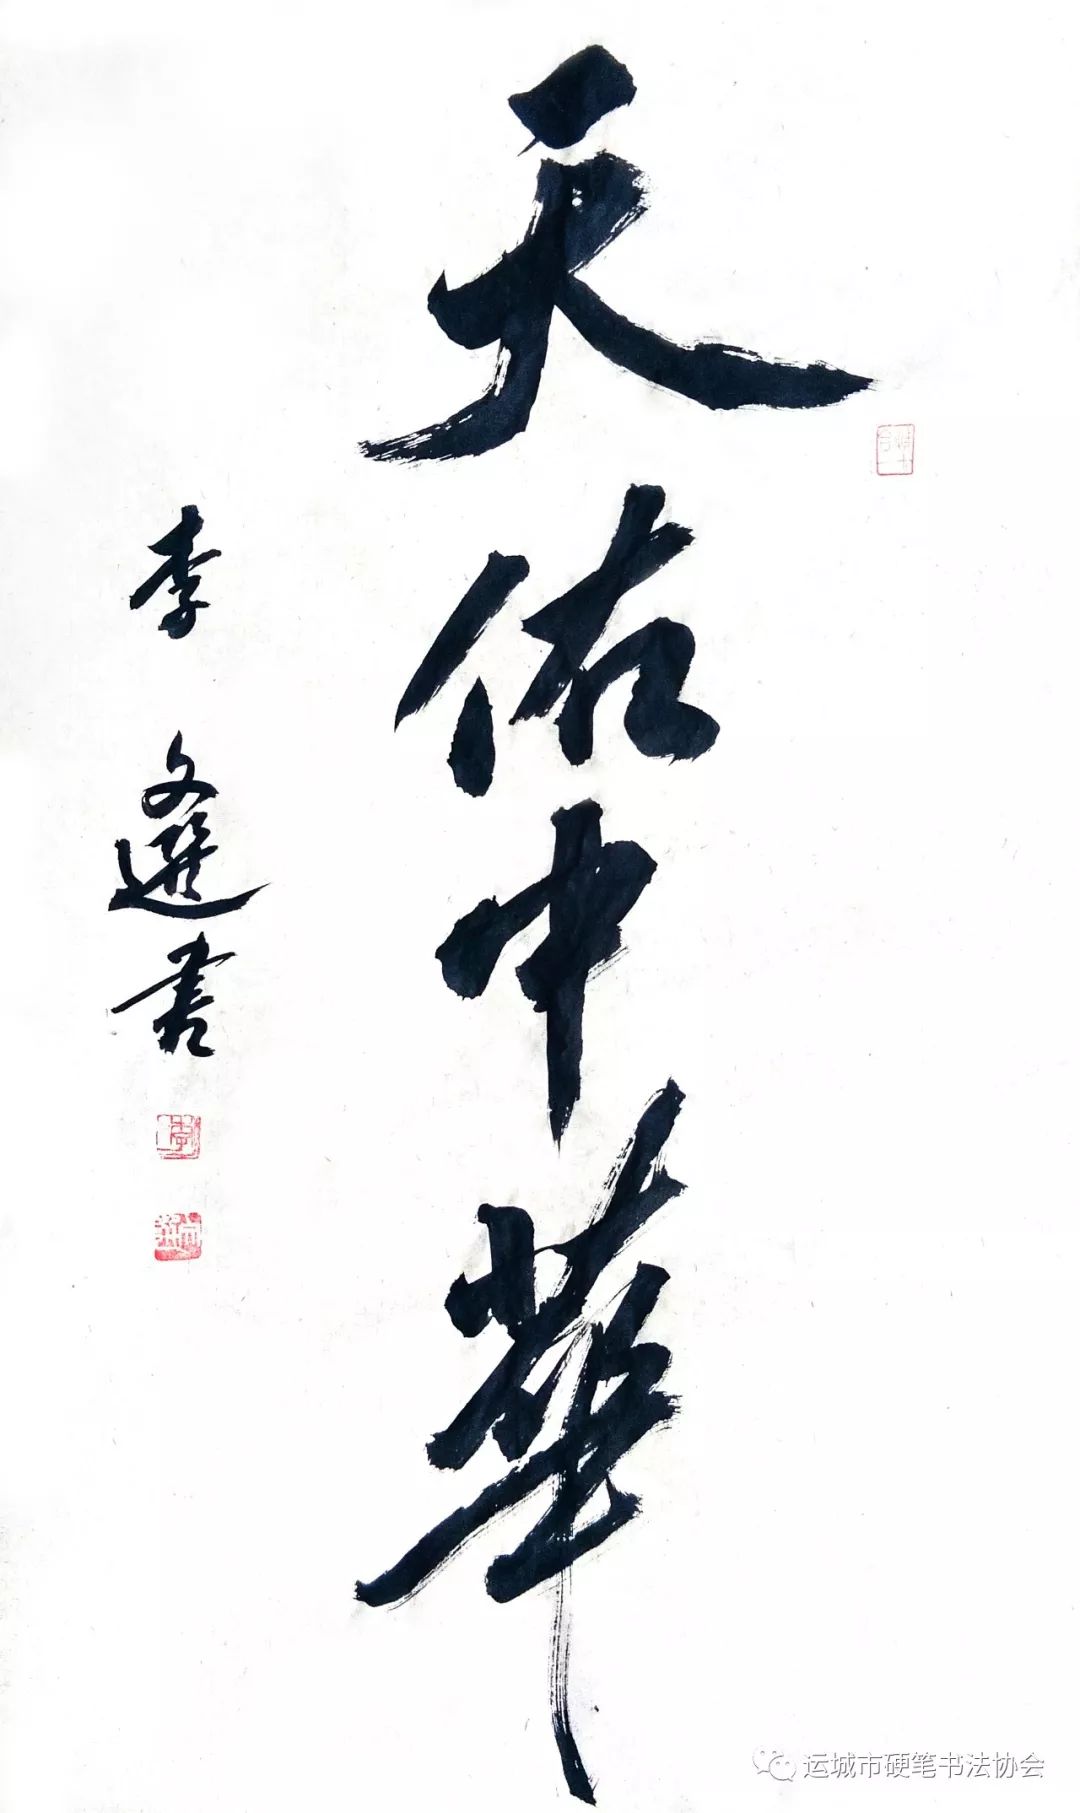 天佑中華
李文選書
运城市硬笔书法协会